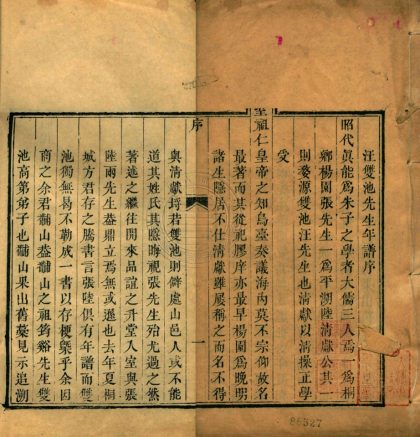 汪雙池先生年譜序
昭代眞能爲朱子之學者大儒三人焉一爲桐
鄉楊園張先生一爲平湖陸清獻公其一
則婺源雙池汪先生也清獻以清操正學
受
聖祖仁皇帝之知烏臺奏議海內莫不宗仰故名
最著而其從祀膠庠亦最早楊園爲晚明
諸生隱居不仕清獻雖屢稱之而名不得
序
一
與清獻埒若雙池則僻處山邑人或不能
道其姓氏其隱晦視張先生殆尤過之然
著述之繼往開來品誼之升堂入室與張
陸兩先生葢鼎立焉無或遜也去年夏桐
城方君存之騰書言張陸俱有年譜而雙
池獨無易不勒成一書以存梗槩乎余因
商之余君黼山葢黼山之祖鈞谿先生雙
池高第弟子也黼山果出舊藁見示追溯
86527